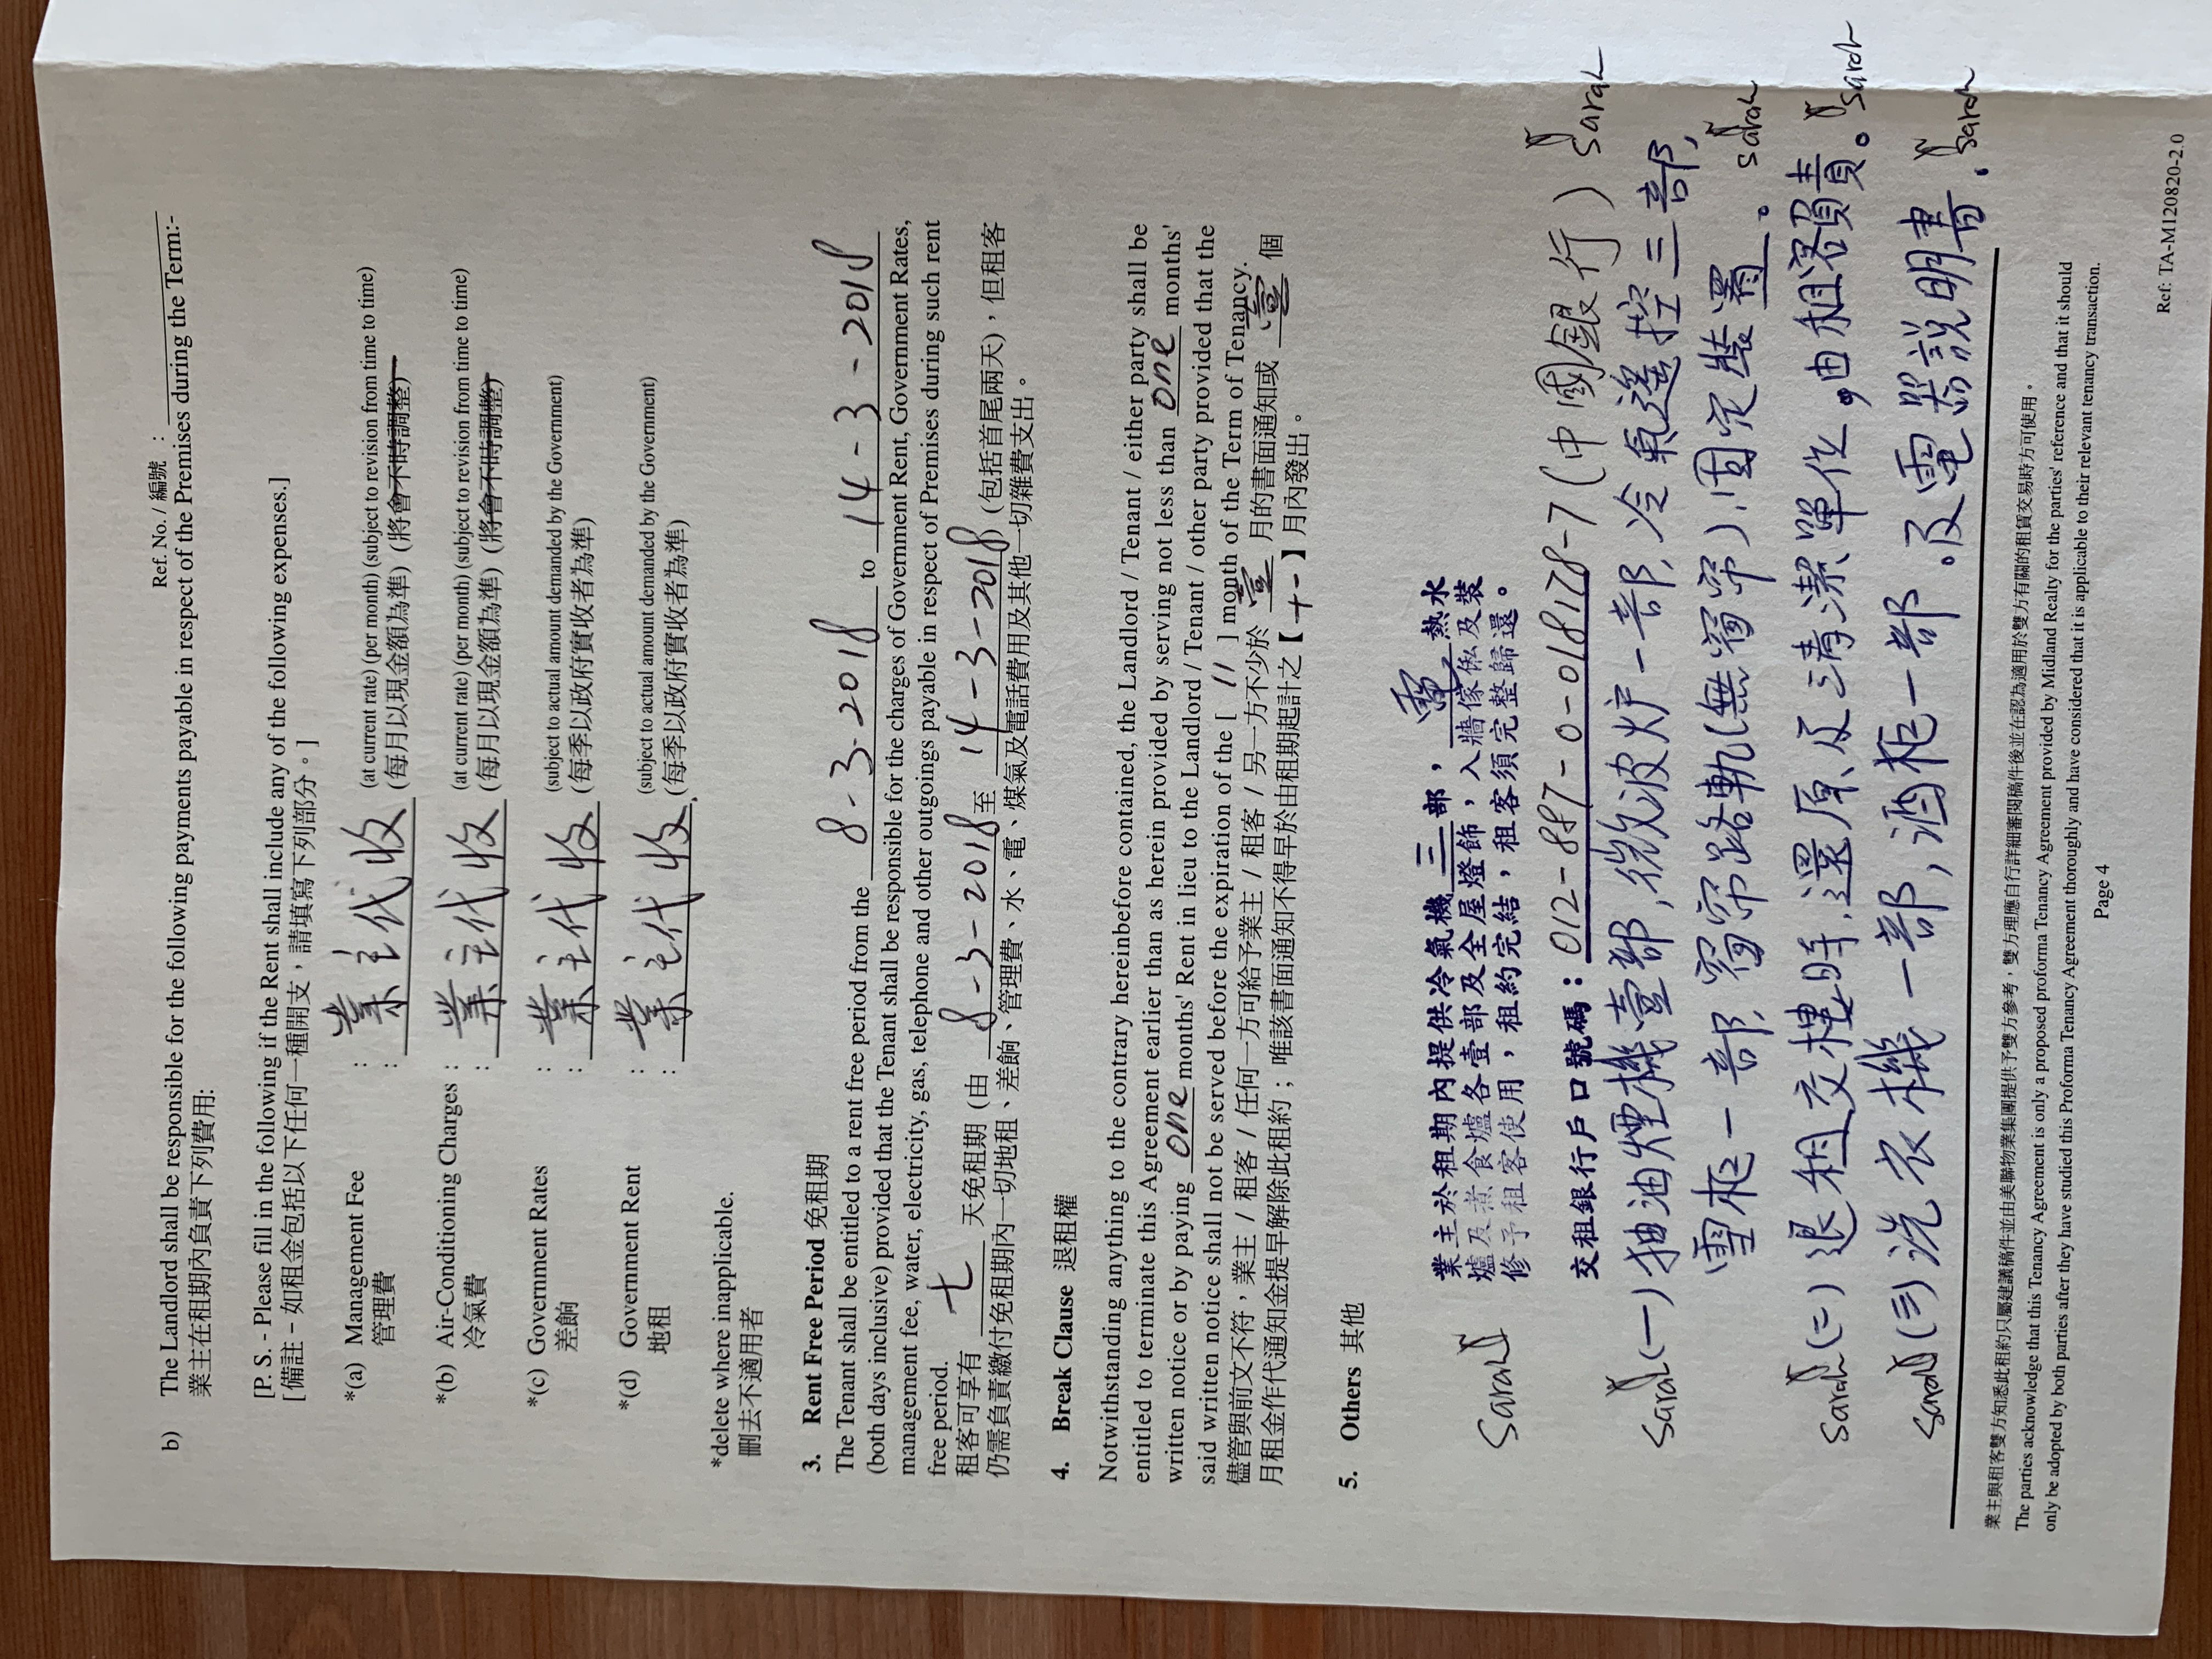 Ref. No. / 編號 :
b) The Landlord shall be responsible for the following payments payable in respect of the Premises during the Term:-
業主在租期內負責下列費用:
[P. S. - Please fill in the following if the Rent shall include any of the following expenses.]
[備註 – 如租金包括以下任何一種開支，請填寫下列部分。]
*(a) Management Fee : 業主代收 (at current rate) (per month) (subject to revision from time to time)
管理費 : (每月以現金額為準) (將會不時調整)
*(b) Air-Conditioning Charges : 業主代收 (at current rate) (per month) (subject to revision from time to time)
冷氣費 : (每月以現金額為準) (將會不時調整)
*(c) Government Rates : 業主代收 (subject to actual amount demanded by the Government)
差餉 : (每季以政府實收者為準)
*(d) Government Rent : 業主代收 (subject to actual amount demanded by the Government)
地租 : (每季以政府實收者為準)
*delete where inapplicable.
刪去不適用者
3. Rent Free Period 免租期
The Tenant shall be entitled to a rent free period from the 8-3-2018 to 14-3-2018
(both days inclusive) provided that the Tenant shall be responsible for the charges of Government Rent, Government Rates,
management fee, water, electricity, gas, telephone and other outgoings payable in respect of Premises during such rent
free period.
租客可享有 七 天免租期 (由 8-3-2018 至 14-3-2018 (包括首尾兩天)，但租客
仍需負責繳付免租期內一切地租、差餉、管理費、水、電、煤氣及電話費用及其他一切雜費支出。
4. Break Clause 退租權
Notwithstanding anything to the contrary hereinbefore contained, the Landlord / Tenant / either party shall be
entitled to terminate this Agreement earlier than as herein provided by serving not less than one months'
written notice or by paying one months' Rent in lieu to the Landlord / Tenant / other party provided that the
said written notice shall not be served before the expiration of the [ 11 ] month of the Term of Tenancy.
儘管與前文不符，業主 / 租客 / 任何一方可給予業主 / 租客 / 另一方不少於 壹 月的書面通知或 壹 個
月租金作代通知金提早解除此租約；唯該書面通知不得早於由租期起計之【十一】月內發出。
5. Others 其他
業主於租期內提供冷氣機三部，電熱水
爐及煮食爐各壹部及全屋燈飾，入牆傢俬及裝
修予租客使用，租約完結，租客須完整歸還。
Sarah
交租銀行戶口號碼：012-887-0-018178-7 (中國銀行) Sarah
Sarah (一) 抽油煙機壹部, 微波炉一部, 冷氣遙控三部,
雪柜一部, 窗帘路軌(無窗帘), 固定裝置。 Sarah
Sarah (二) 退租交樓時, 還原及清潔單位, 由租客負責。 Sarah
Sarah (三) 洗衣機一部, 酒柜一部。及電器説明書. Sarah
業主與租客雙方知悉此租約只屬建議稿件並由美聯物業集團提供予雙方參考，雙方理應自行詳細審閱稿件後並在認為適用於雙方有關的租賃交易時方可使用。
The parties acknowledge that this Tenancy Agreement is only a proposed proforma Tenancy Agreement provided by Midland Realty for the parties' reference and that it should
only be adopted by both parties after they have studied this Proforma Tenancy Agreement thoroughly and have considered that it is applicable to their relevant tenancy transaction.
Page 4
Ref: TA-M120820-2.0